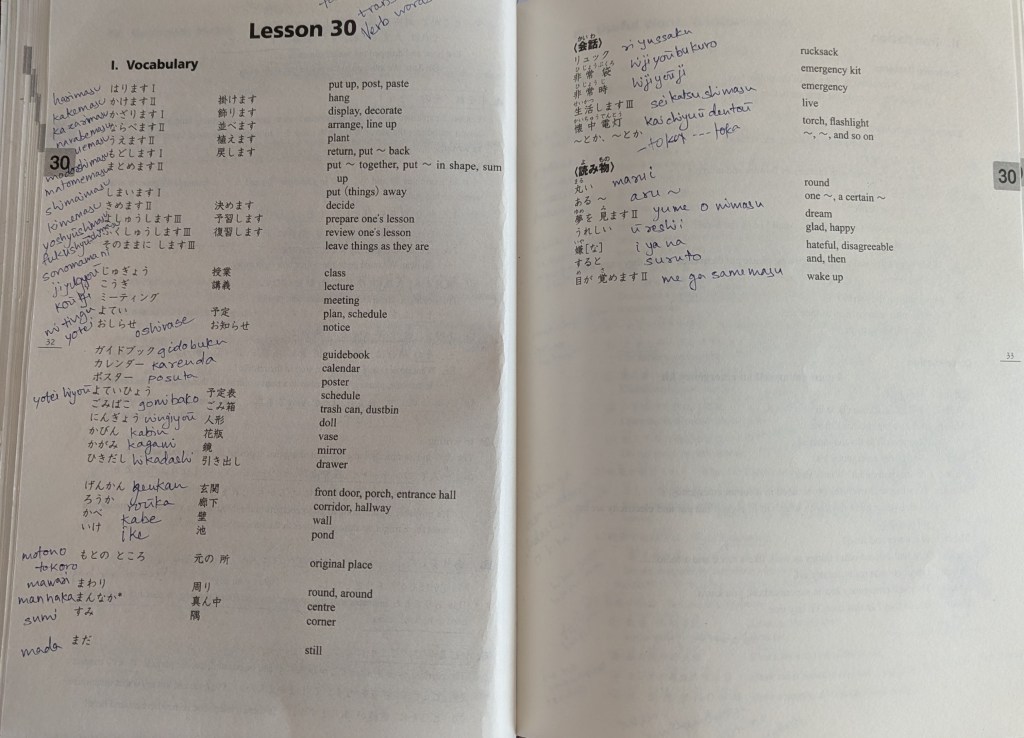 tran
Verb word
Lesson 30
I. Vocabulary
harimasu はります I put up, post, paste
kakemasu かけます II 掛けます hang
kazarimasu かざります I 飾ります display, decorate
narabemasu ならべます II 並べます arrange, line up
uemasu うえます II 植えます plant
30
modoshimasu もどします I 戻します return, put ～ back
matomemasu まとめます II put ～ together, put ～ in shape, sum
up
shimaimasu しまいます I put (things) away
kimemasu きめます II 決めます decide
yoshyūshimasu よしゅうします III 予習します prepare one's lesson
fukushyūshimasu ふくしゅうします III 復習します review one's lesson
sonomamani そのままに します III leave things as they are
jiyugyoū じゅぎょう 授業 class
koūgi こうぎ 講義 lecture
mitingu ミーティング meeting
yotei よてい 予定 plan, schedule
おしらせ oshirase お知らせ notice
32
ガイドブック gidobuku guidebook
カレンダー karenda calendar
ポスター posuta poster
yotei hiyoū よていひょう 予定表 schedule
ごみばこ gomibako ごみ箱 trash can, dustbin
にんぎょう ningiyoū 人形 doll
かびん kabin 花瓶 vase
かがみ kagami 鏡 mirror
ひきだし hikadashi 引き出し drawer
げんかん genkan 玄関 front door, porch, entrance hall
ろうか roūka 廊下 corridor, hallway
かべ kabe 壁 wall
いけ ike 池 pond
motono もとの ところ 元の 所 original place
tokoro
mawari まわり 周り round, around
manhaka まんなか* 真ん中 centre
sumi すみ 隅 corner
mada まだ still
〈会話〉
かいわ
リュック riyussaku rucksack
非常袋 hijiyoūbukuro emergency kit
ひじょうぶくろ
非常時 hijiyoūji emergency
ひじょうじ
生活します III seikatsushimasu live
せいかつ
懐中電灯 kaichiyuū dentoū torch, flashlight
かいちゅうでんとう
～とか、～とか -toka --- toka ～, ～, and so on
〈読み物〉
よ もの
30
丸い marui round
まる
ある～ aru ～ one ～, a certain ～
夢を 見ます II yume o mimasu dream
ゆめ み
うれしい ureshii glad, happy
嫌[な] iya na hateful, disagreeable
いや
すると suruto and, then
目が 覚めます II me ga samemasu wake up
め さ
33